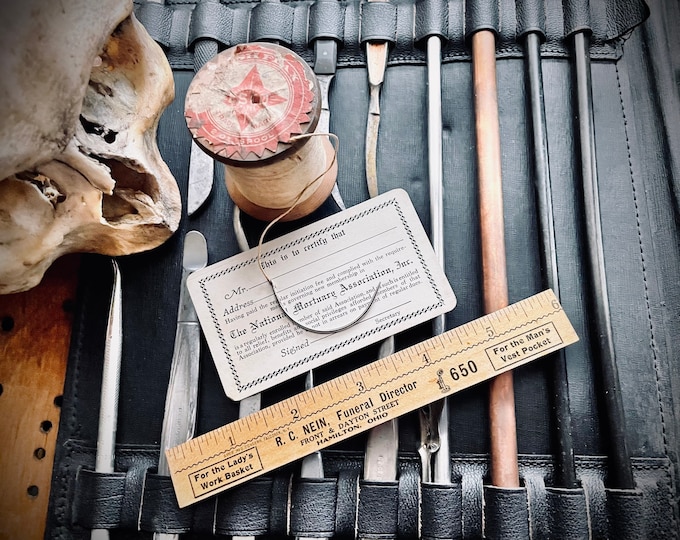 This is to certify that
Mr.
Address
Having paid the regular initiation fee and complied with the require-
governing new membership in
The National Mortuary Association, Inc.
is a regularly enrolled member of said Association and as such is entitled
to all relief, benefits and social privileges afforded members of that
Association, provided he is not in arrears on payment of regular dues.
Signed
Secretary
1 2 3 4 5 6
R. C. NEIN, Funeral Director
FRONT & DAYTON STREET
HAMILTON, OHIO
650
For the Lady's
Work Basket
For the Man's
Vest Pocket